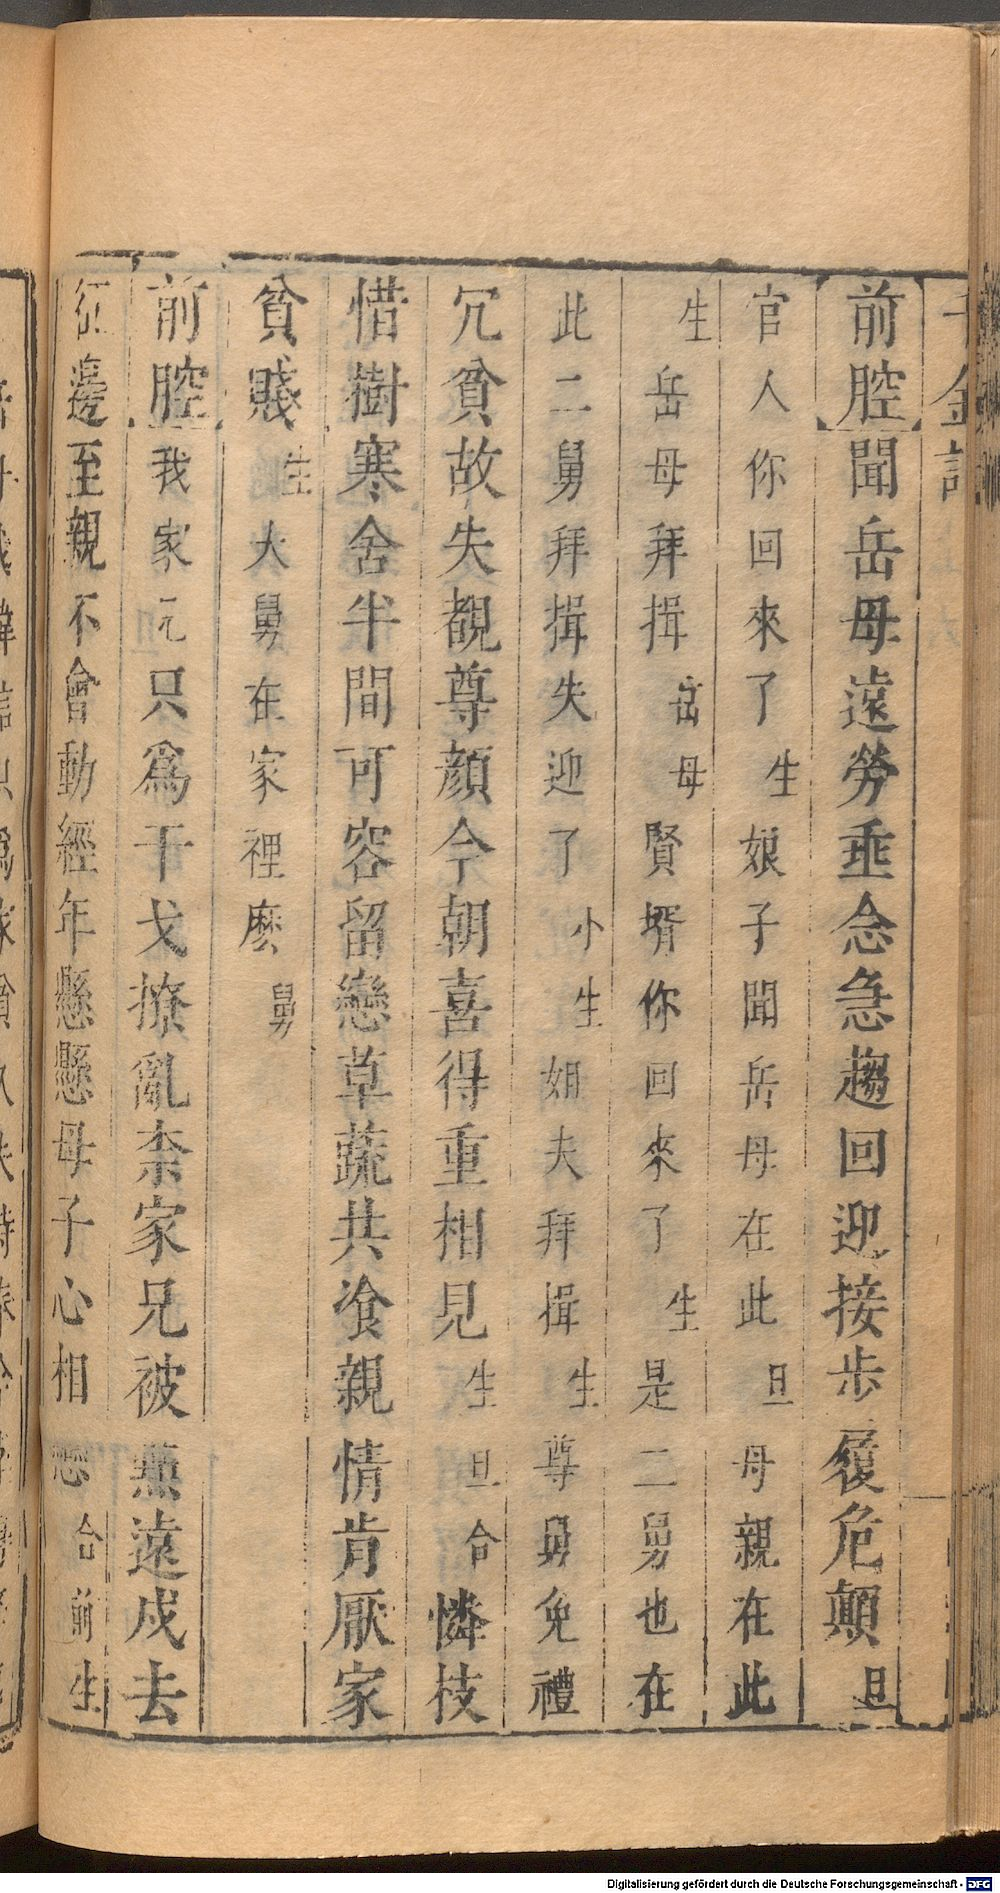 千金記
前腔聞岳母遠勞垂念急趨回迎接步履危顛旦
官人你回來了生娘子聞岳母在此旦母親在此
生岳母拜揖岳母賢壻你回來了生是二舅也在
此二舅拜揖失迎了小生姐夫拜揖生尊舅免禮
冗貧故失覩尊顏今朝喜得重相見生旦合憐枝
惜樹寒舍半間可容留戀草蔬共飡親情肯厭家
貧賤生大舅在家裡麽舅
前腔我家兄只爲干戈撩亂柰家兄被燕遠戍去
征邊至親不會動經年懸懸母子心相戀合前生
Digitalisierung gefördert durch die Deutsche Forschungsgemeinschaft - DFG